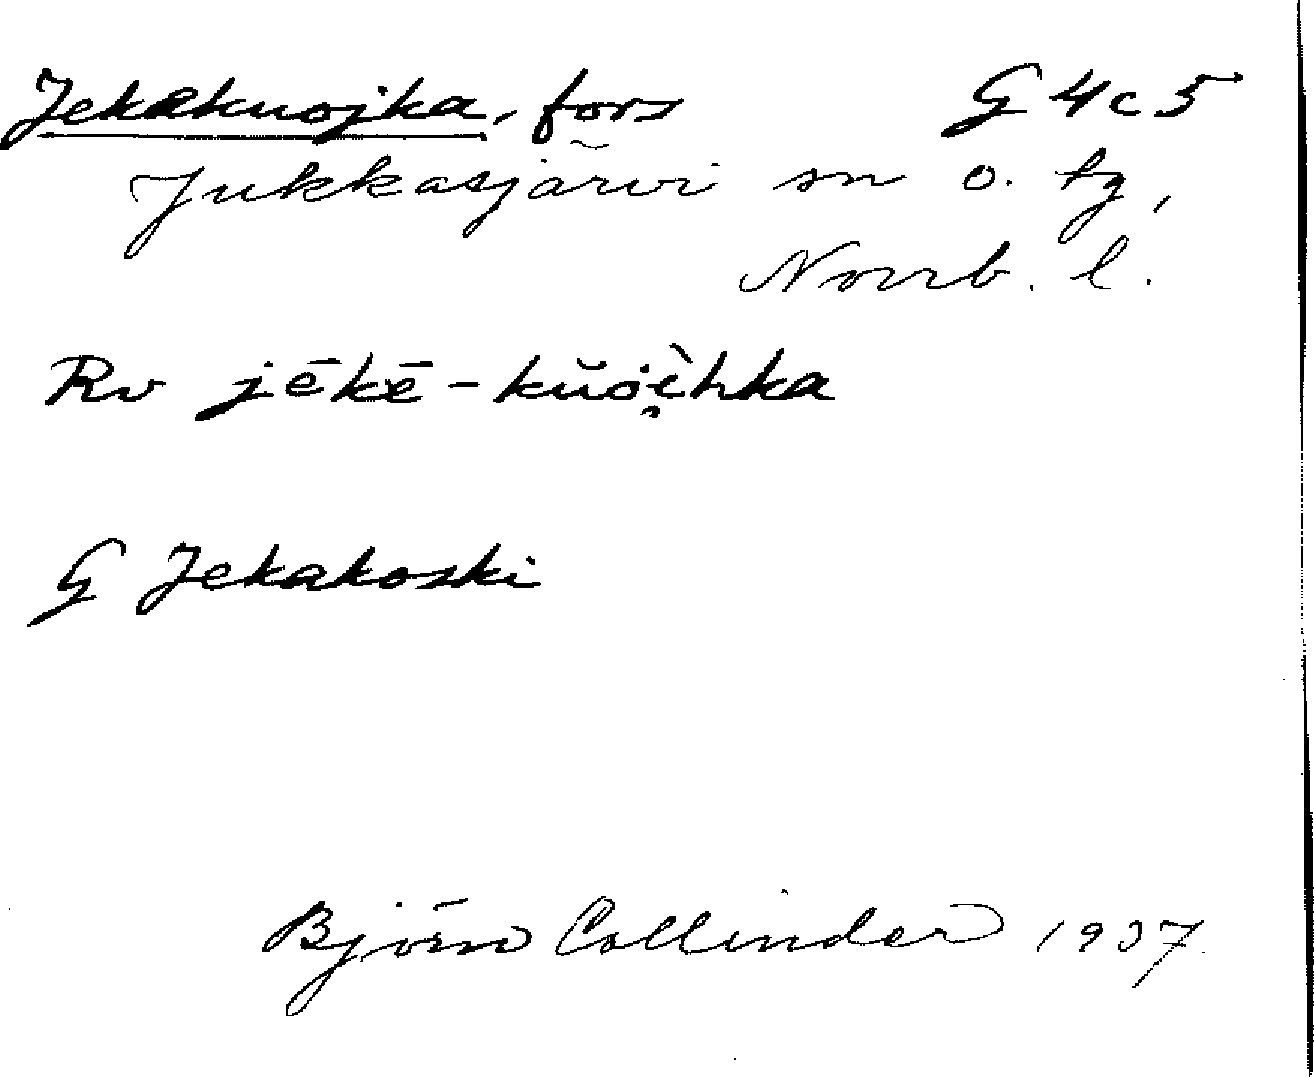 Jekakuojka, fors G 4c5
Jukkasjärvi sn o. tg,
Norrb. l.
Rv jēkē-kŭo̯ìhka
G Jekakoski
Björn Collinder 1937.